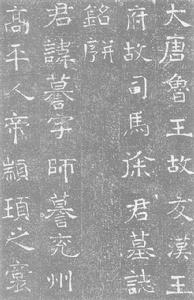 大唐魯王故友漢王
府故司馬徐君墓誌
銘并序
君諱謩字師謩兗州
高平人帝顓頊之裔